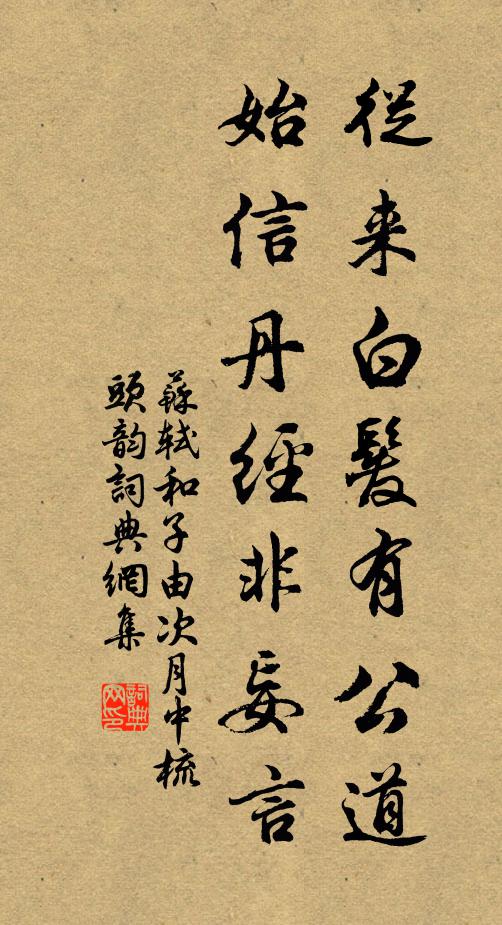 從来白髮有公道
始信丹經非妄言
蘇軾和子由次月中梳
頭韵詞典網集
詞典
网印